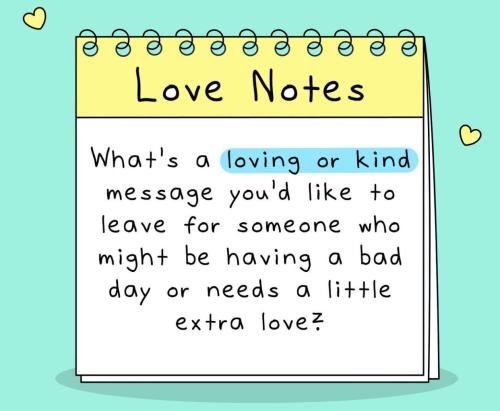 Love Notes
What's a loving or kind
message you'd like to
leave for someone who
might be having a bad
day or needs a little
extra love?